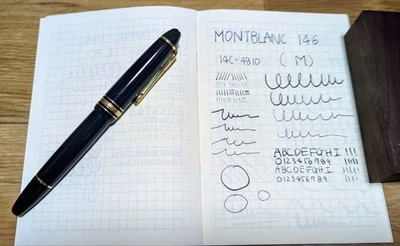 MONTBLANC 146
14C-4810 (M)
ABCDEFGHI
0123456789
ABCDEFGHI
0123456789